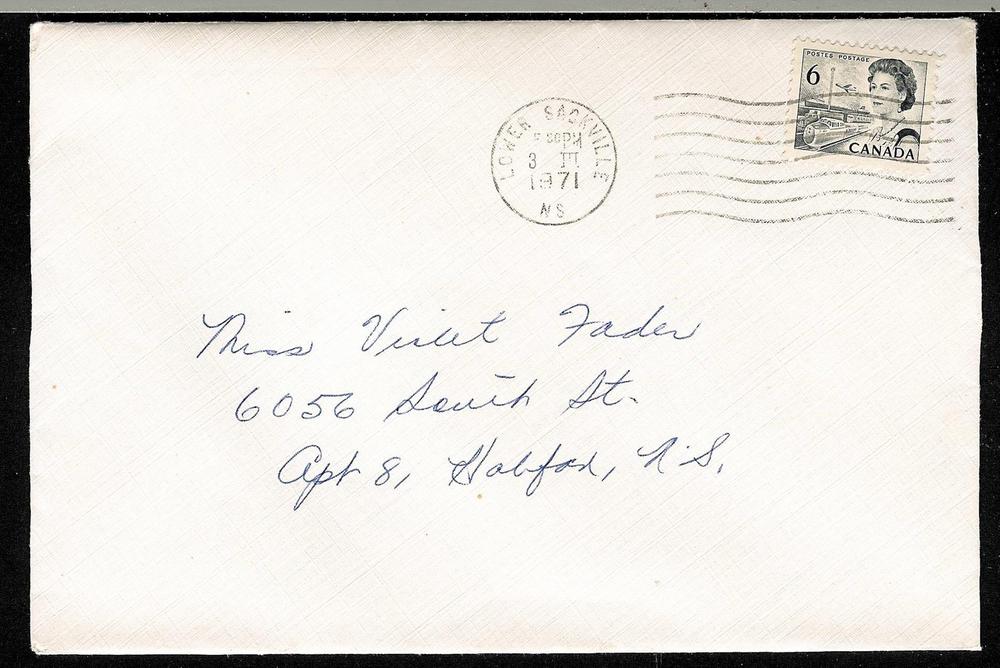 POSTES POSTAGE
6
CANADA
LOWER SACKVILLE
PM
3 III
1971
NS
Miss Violet Fader
6056 South St.
Apt 8, Halifax, N.S.